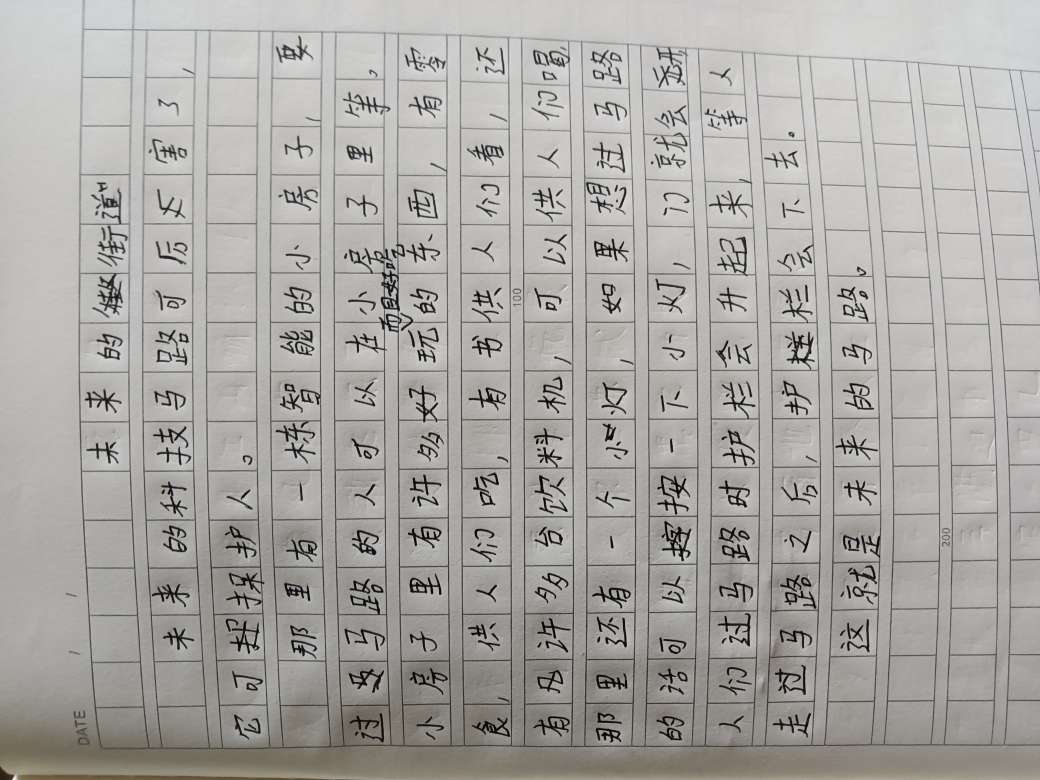 DATE
未来的街道
未来的科技马路可厉厉害了，
它可护人。
那里有一栋智能的小房子，要
过马路的人可以在小房子里等。
而且好吃
小房子里有许多好玩的东西，有零
食，供人们吃，有书供人们看，还
有许多台饮料机，可以供人们喝
那里还有一个小灯，如果想过马路
的话可以按一下小灯，门就会
人们过马路时护栏会升起来，等人
100
走过马路之后，护栏会下去。
这就是未来的马路。
200